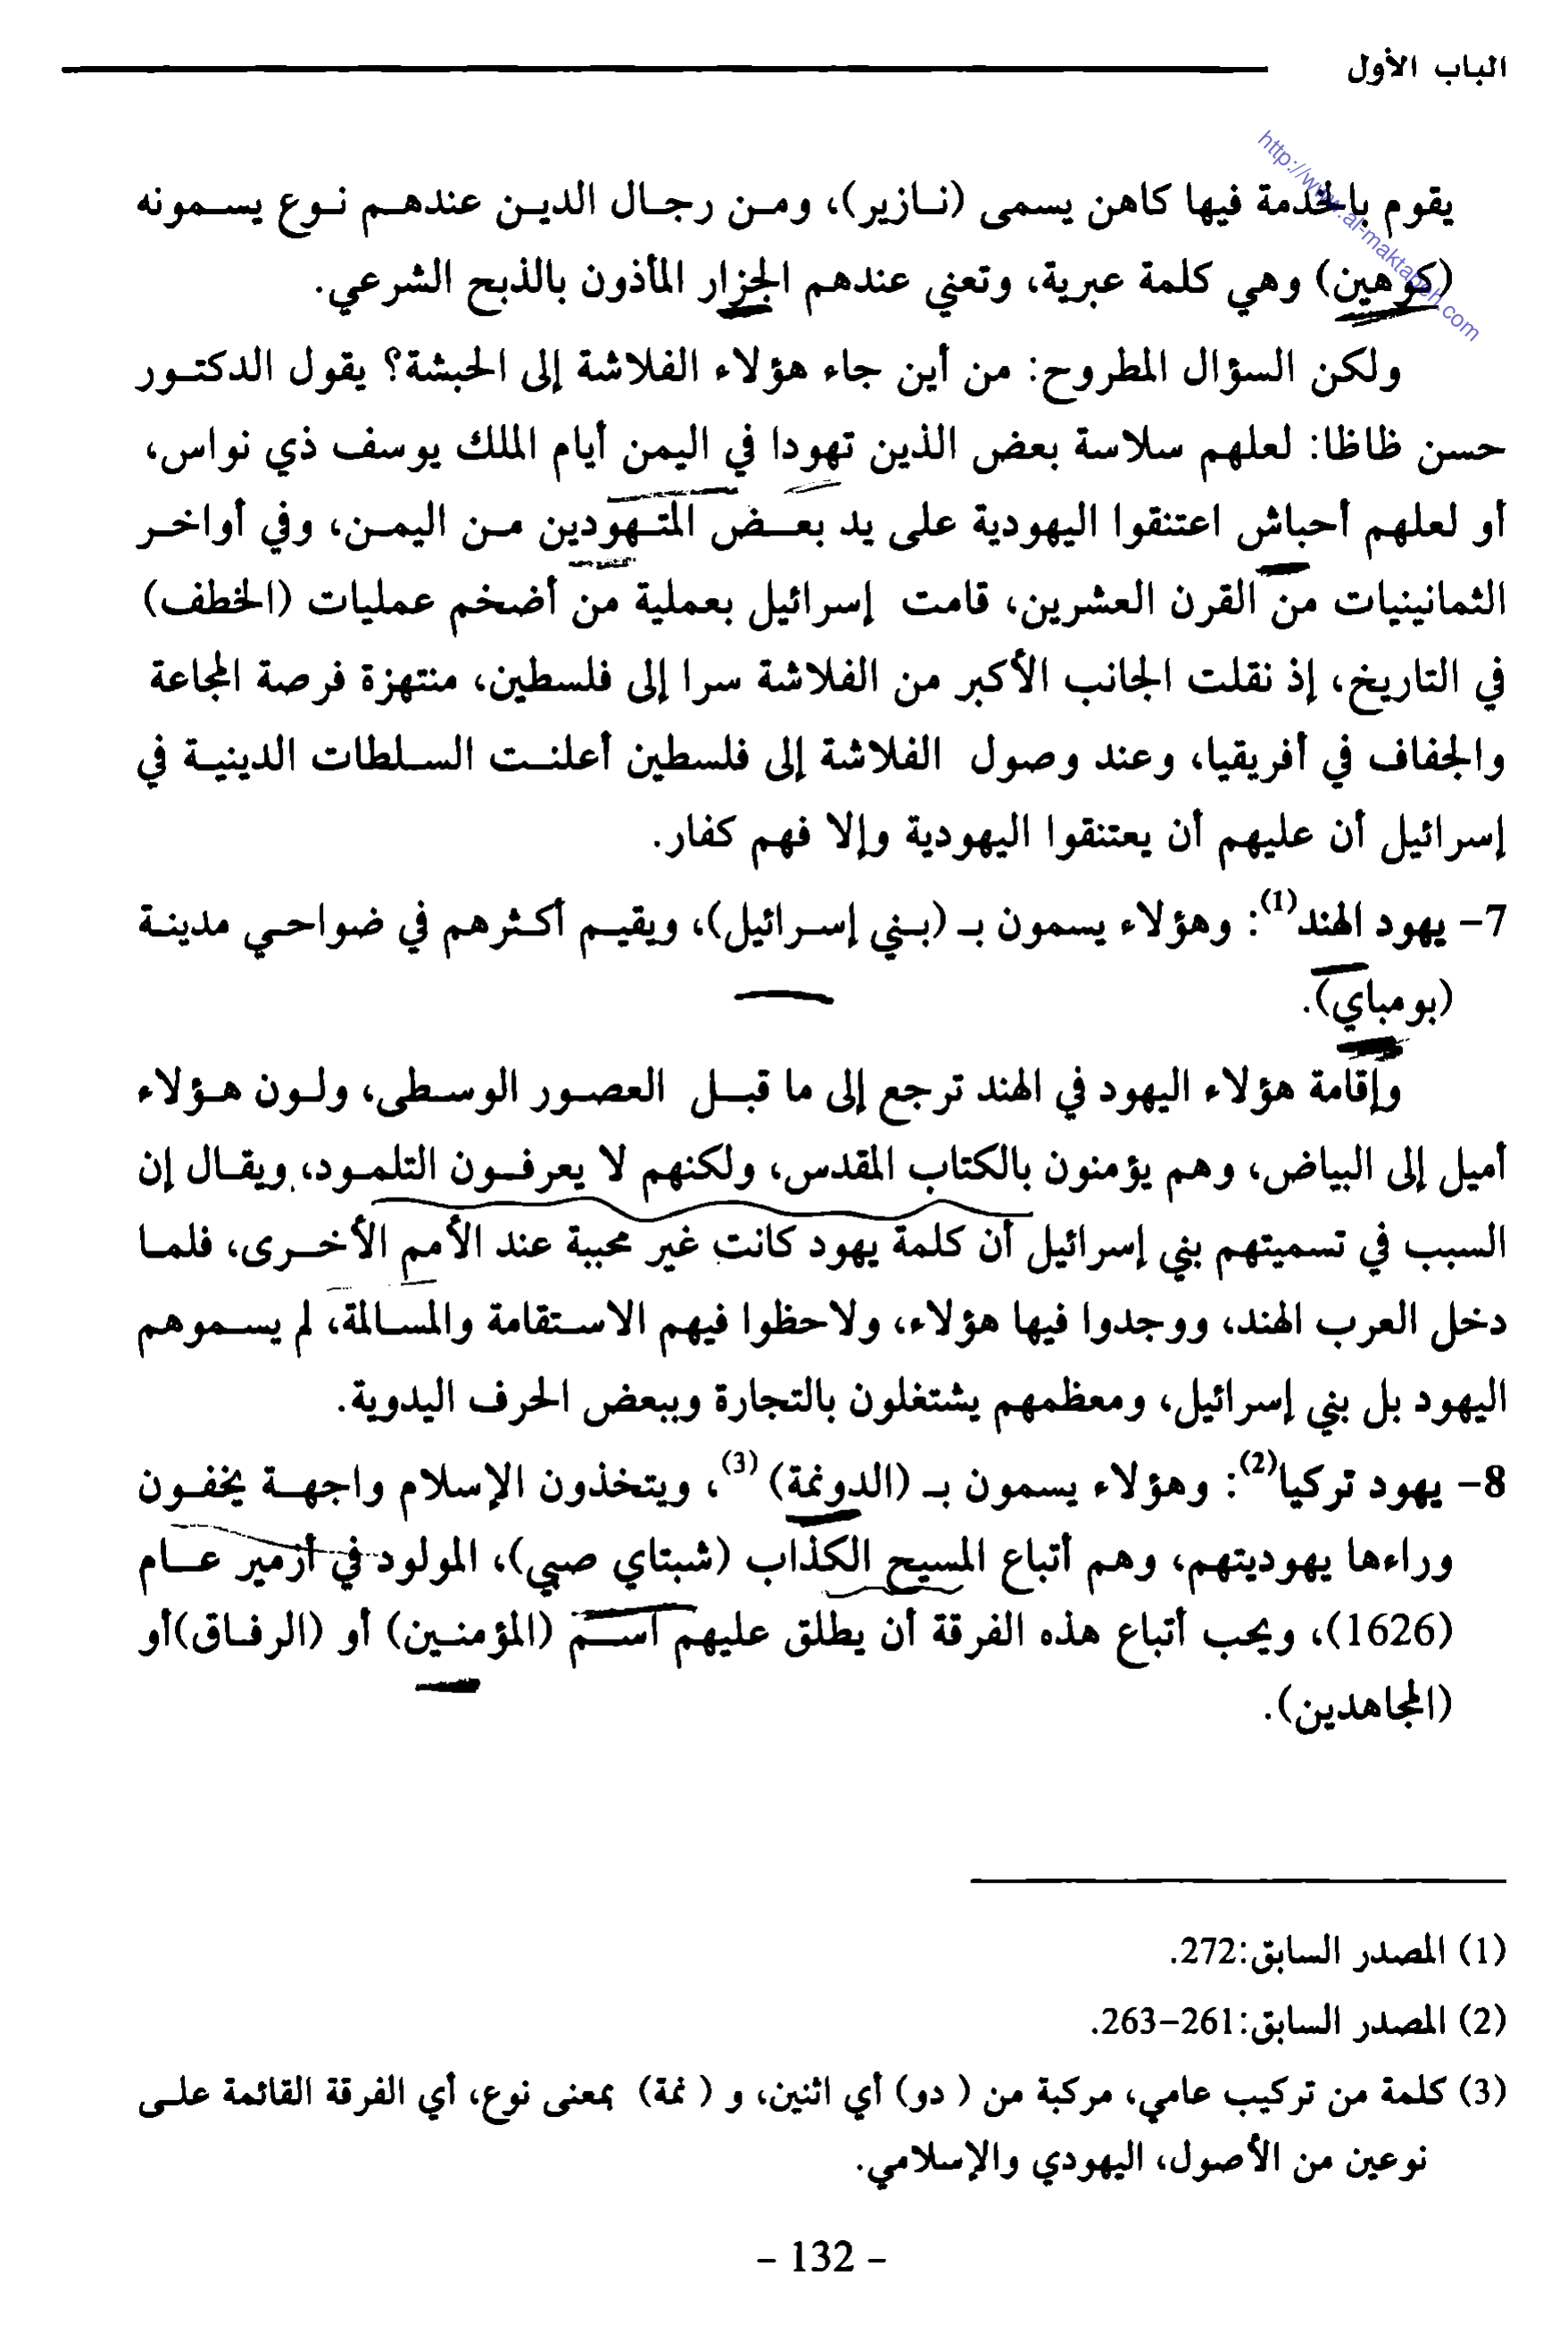 الباب الأول
http://www.al-maktabeh.com
يقوم بالخدمة فيها كاهن يسمى (نازير)، ومن رجال الدين عندهم نوع يسمونه
(كوهين) وهي كلمة عبرية، وتعني عندهم الجزار المأذون بالذبح الشرعي.
ولكن السؤال المطروح: من أين جاء هؤلاء الفلاشة إلى الحبشة؟ يقول الدكتور
حسن ظاظا: لعلهم سلاسة بعض الذين تهودا في اليمن أيام الملك يوسف ذي نواس،
أو لعلهم أحباش اعتنقوا اليهودية على يد بعض المتهودين من اليمن، وفي أواخر
الثمانينيات من القرن العشرين، قامت إسرائيل بعملية من أضخم عمليات (الخطف)
في التاريخ، إذ نقلت الجانب الأكبر من الفلاشة سرا إلى فلسطين، منتهزة فرصة المجاعة
والجفاف في أفريقيا، وعند وصول الفلاشة إلى فلسطين أعلنت السلطات الدينية في
إسرائيل أن عليهم أن يعتنقوا اليهودية وإلا فهم كفار.
7- يهود الهند(1): وهؤلاء يسمون بـ (بني إسرائيل)، ويقيم أكثرهم في ضواحي مدينة
(بومباي).
وإقامة هؤلاء اليهود في الهند ترجع إلى ما قبل العصور الوسطى، ولون هؤلاء
أميل إلى البياض، وهم يؤمنون بالكتاب المقدس، ولكنهم لا يعرفون التلمود، ويقال إن
السبب في تسميتهم بني إسرائيل أن كلمة يهود كانت غير محببة عند الأمم الأخرى، فلما
دخل العرب الهند، ووجدوا فيها هؤلاء، ولاحظوا فيهم الاستقامة والمسالمة، لم يسموهم
اليهود بل بني إسرائيل، ومعظمهم يشتغلون بالتجارة وببعض الحرف اليدوية.
8- يهود تركيا(2): وهؤلاء يسمون بـ (الدونمة) (3)، ويتخذون الإسلام واجهة يخفون
وراءها يهوديتهم، وهم أتباع المسيح الكذاب (شبتاي صبي)، المولود في أزمير عام
(1626)، ويحب أتباع هذه الفرقة أن يطلق عليهم اسم (المؤمنين) أو (الرفاق)أو
(المجاهدين).
(1) المصدر السابق:272.
(2) المصدر السابق:261-263.
(3) كلمة من تركيب عامي، مركبة من ( دو) أي اثنين، و ( نمة) بمعنى نوع، أي الفرقة القائمة على
نوعين من الأصول، اليهودي والإسلامي.
- 132 -